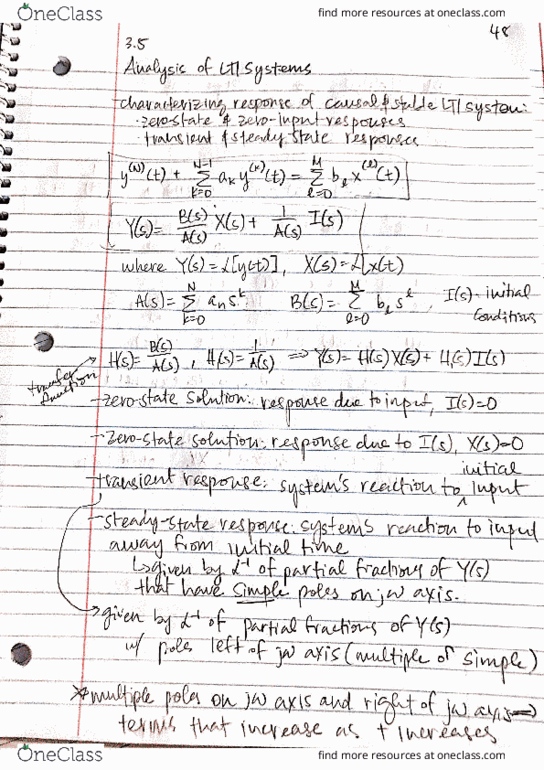 OneClass
find more resources at oneclass.com
48
3.5
Analysis of LTI Systems
characterizing response of causal & stable LTI system:
· zero-state & zero-input responses
· transient & steady state responses
y^(N)(t) + Σ_{k=0}^{N-1} a_k y^(k)(t) = Σ_{ℓ=0}^{M} b_ℓ x^(ℓ)(t)
Y(s) = B(s)/A(s) X(s) + 1/A(s) I(s)
where Y(s) = ℒ[y(t)], X(s) = ℒ[x(t)
A(s) = Σ_{k=0}^{N} a_n s^k B(s) = Σ_{ℓ=0}^{M} b_ℓ s^ℓ, I(s) - initial
conditions
H(s) = B(s)/A(s), H_1(s) = 1/A(s) ⟹ Y(s) = H(s)X(s) + H_1(s)I(s)
transfer
function
- zero-state solution: response due to input, I(s)=0
- zero-state solution: response due to I(s), X(s)=0
initial
- transient response: system's reaction to ^ input
- steady-state response: systems reaction to input
away from initial time
↳ given by ℒ^-1 of partial fractions of Y(s)
that have simple poles on jω axis.
given by ℒ^-1 of partial fractions of Y(s)
w/ poles left of jω axis (multiple of simple)
* multiple poles on jω axis and right of jω axis ⟹
terms that increase as t increases
OneClass
find more resources at oneclass.com